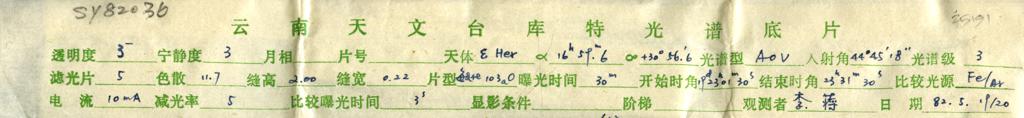 SY82036
云南天文台库特光谱底片
透明度 5 宁静度 3 月相 片号 天体 ε Her α 16h 59m.6 δ +30° 56'.6 光谱型 A0V 入射角 44°45'18" 光谱级 3
滤光片 5 色散 11.7 缝高 2.00 缝宽 0.22 片型 103aO 曝光时间 30m 开始时角 23h 01m 30s 结束时角 23h 31m 30s 比较光源 Fe/Ar
电流 10mA 减光率 5 比较曝光时间 3s 显影条件 阶梯 观测者 李 蒋 日期 82.5.19/20